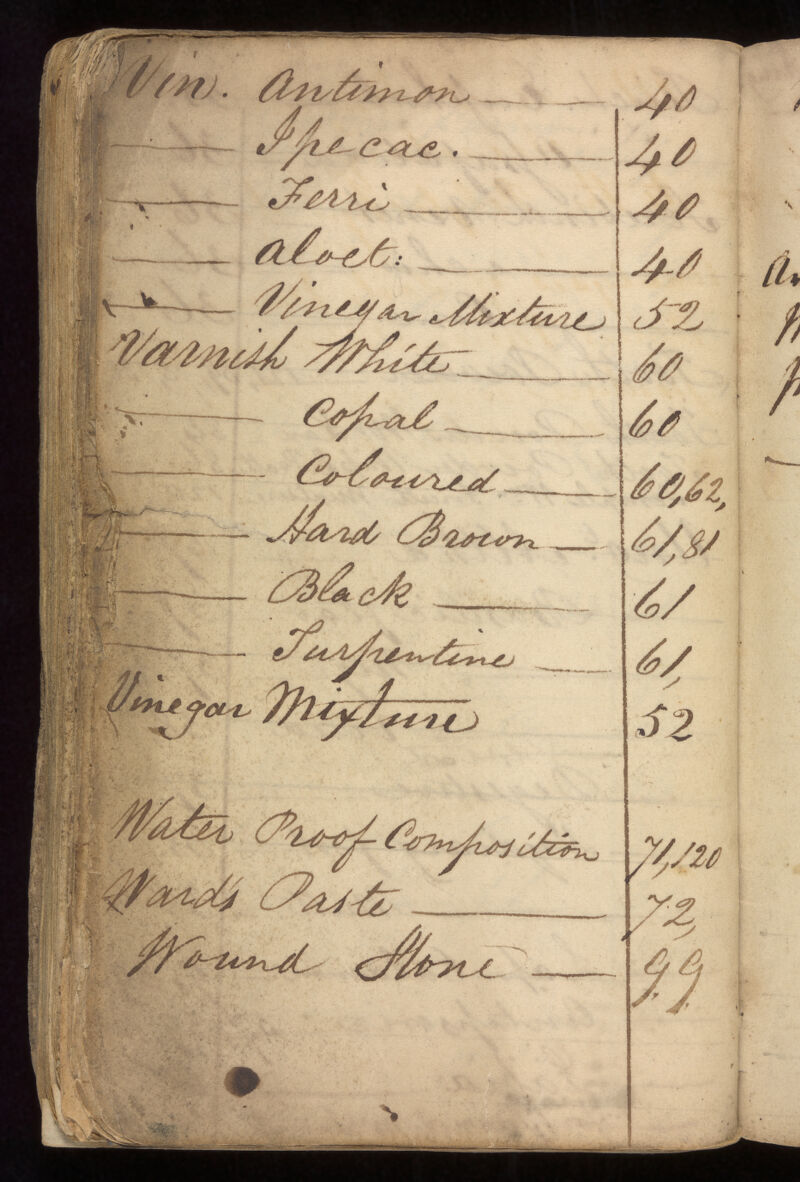 Vin. Antimon —— 40
—— Ipecac. —— 40
—— Ferri —— 40
—— Aloet: —— 40
—— Vinegar Mixture 52
Varnish White —— 60
—— Copal —— 60
—— Coloured —— 60,62,
—— Hard Brown — 61,81
—— Black —— 61
—— Turpentine —— 61,
Vinegar Mixture 52
Water Proof Composition 71,120
Ward's Paste —— 72,
Wound Stone — 99